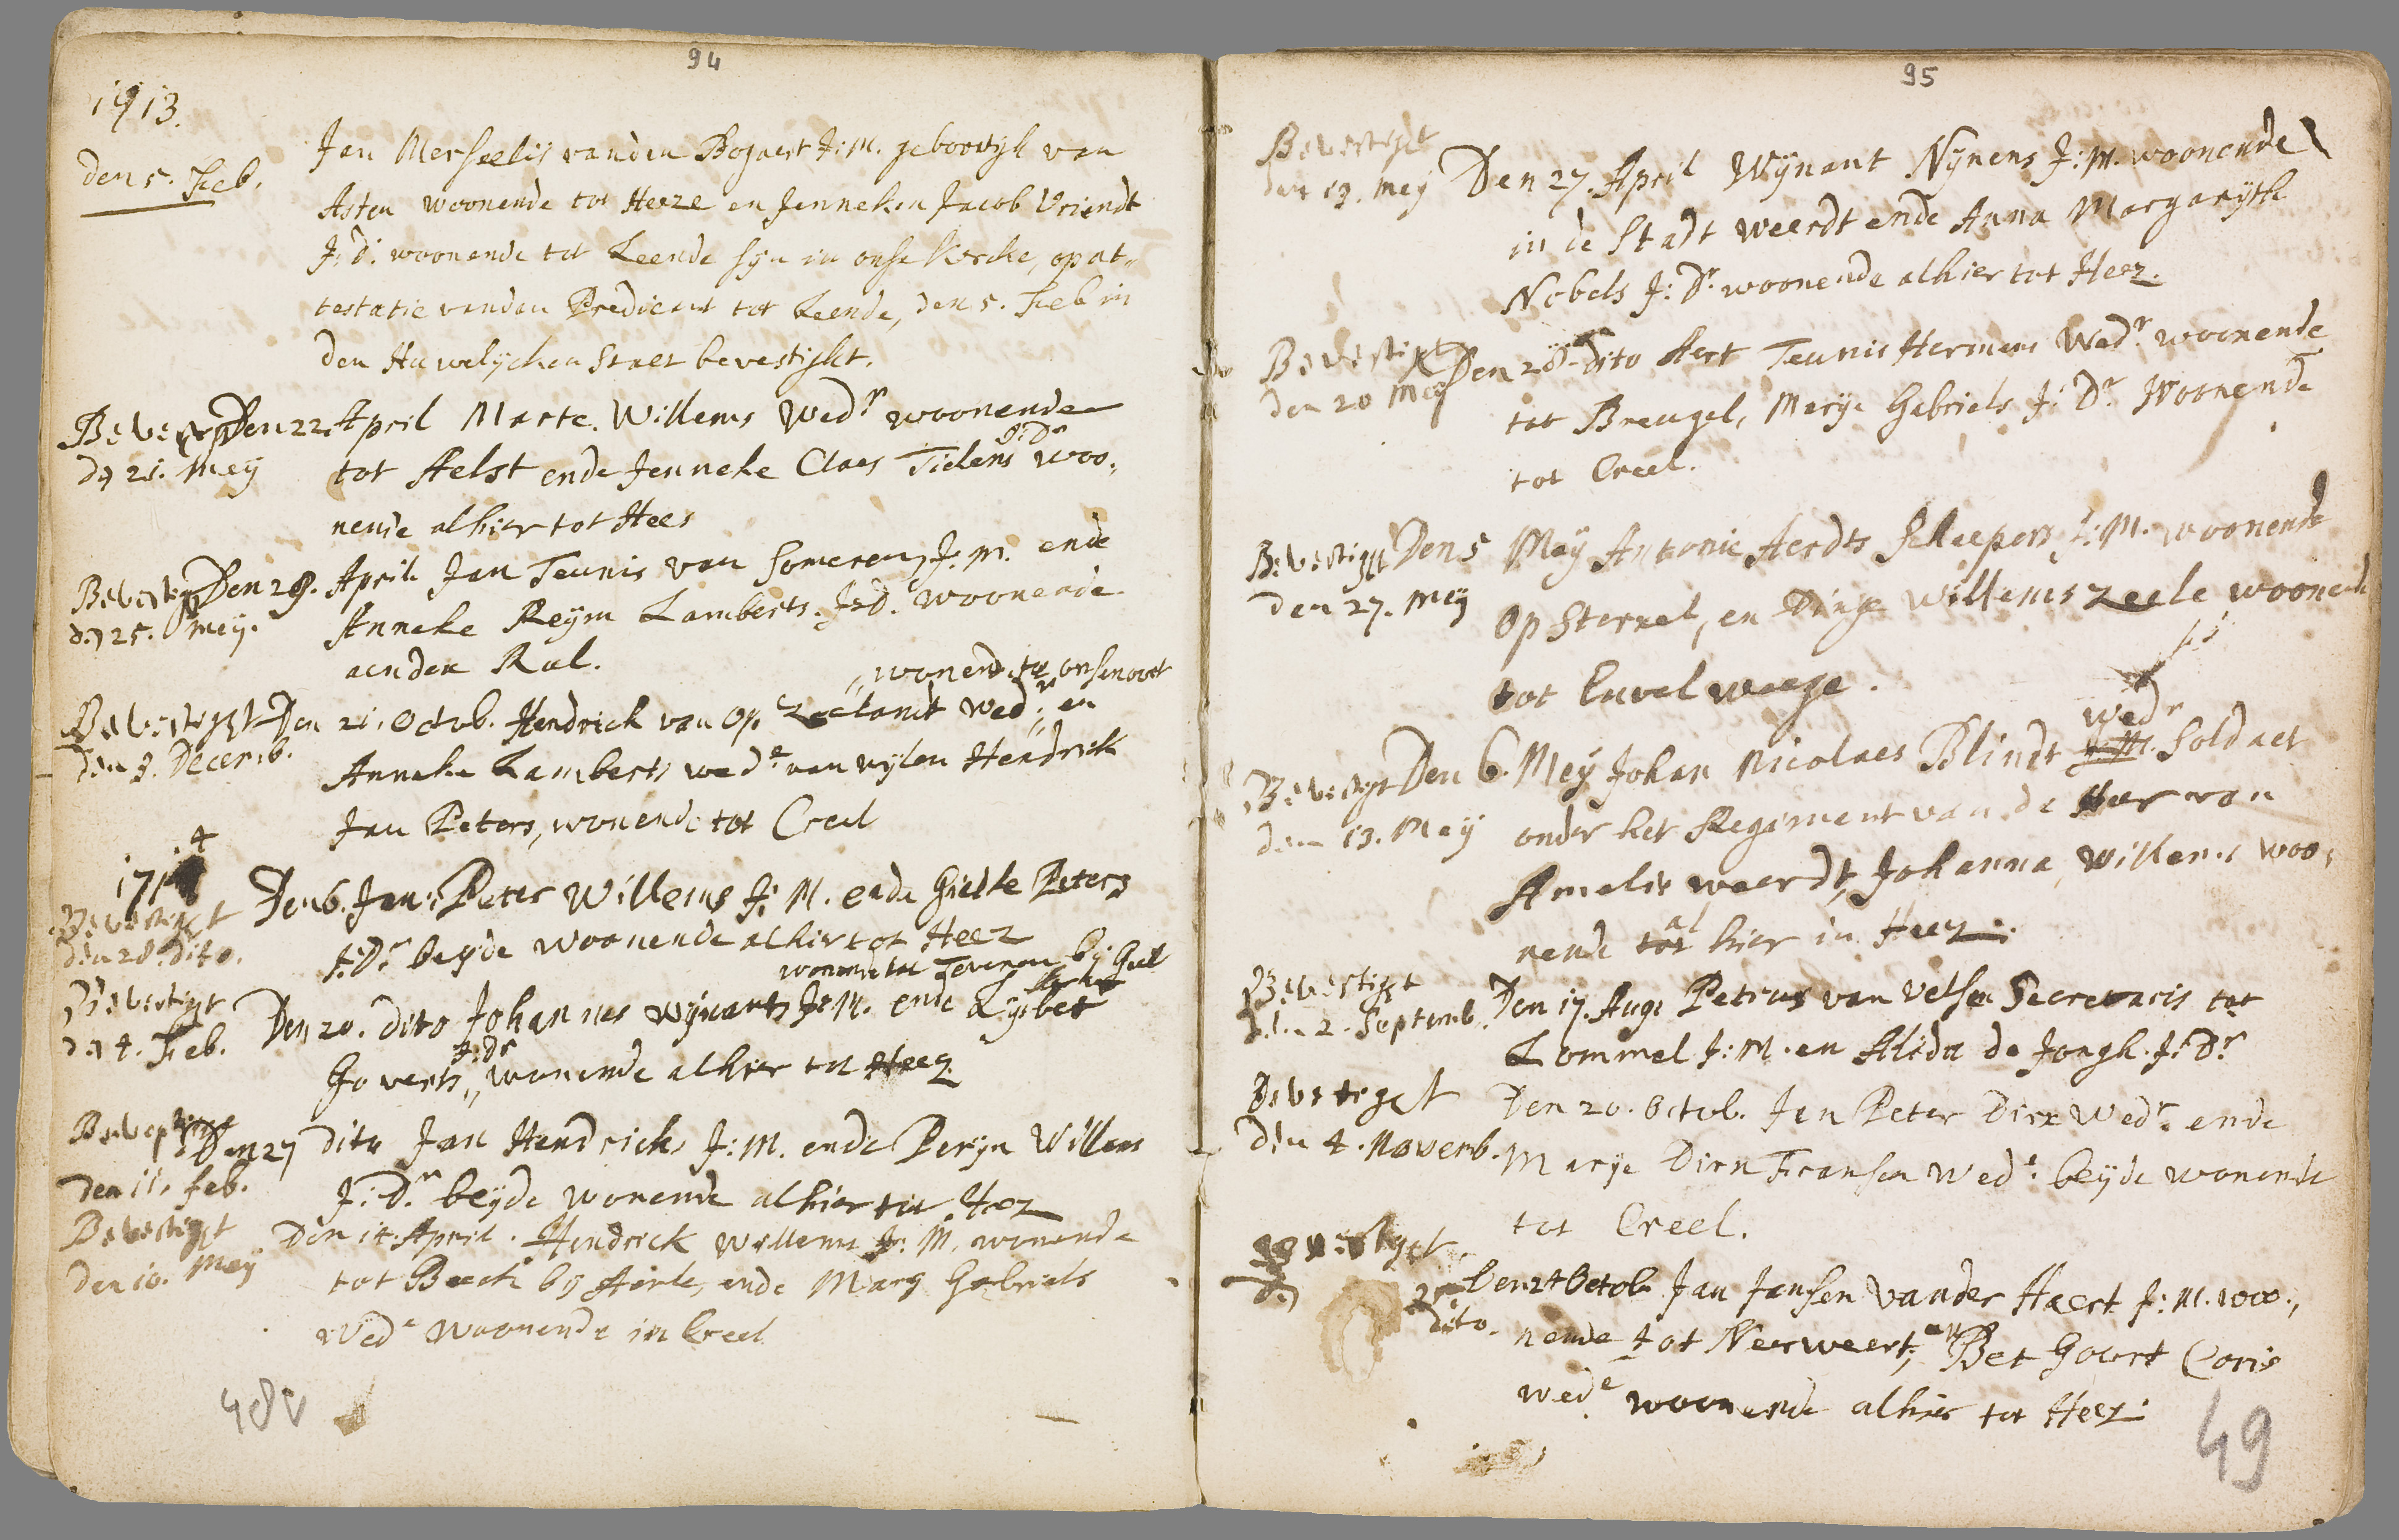 94
1713.
den 5. Feb.
Jan Merseelis vanden Bogaert J:M. geboortigh van
Asten woonende tot Heeze en Jenneken Jacob Vriendt
J:D: woonende tot Leende syn in onse Kercke, op at-
testatie vanden Predicant tot Leende, den 5. Feb in
den Huwelijcken Staet bevestight.
Den 22. April Marte. Willems Wedr woonende
den 21. Mey
J:Dr
tot Aelst ende Jenneke Claes Tielens woo,
nende alhier tot Hees
Bevestigt
den 25. Mey.
Den 28. April Jan Teunis van Someren, J:M. ende
Anneke Reym Lamberts. J:D. woonende
aenden Rul.
Bevestigt
den 3. Decemb.
wonend. te onsenoort
Den 21. Octob. Hendrick van Op Zeelandt Wedr: en
Anneke Lamberts wede van wylen Hendrick
Jan Peters, wonende tot Creil
1714
Bevestigt
den 28. dito.
Den 6. Jan: Peter Willems J:M. ende Gielke Peters
J:Dr beyde woonende alhier tot Heez
Bevestigt
den 4. Feb.
wonende tot by Geel
Den 20. dito Johannes Wynants J:M. ende Lysbet
J:Dr
Goverts, wonende alhier tot Heez
den 11. feb.
Den 27 dito Jan Hendricks J:M. ende Peryn Willems
J:Dr beyde wonende alhier tot Heez
Bevestigt
den 10. Mey
Den 14. April. Hendrick Willems J:M. wonende
tot Beeck by Aerle, ende Mary Gabriels
Wede woonende in Creel
48v
95
Bevestigt
den 13. Mey
Den 27. April Wynant Nynens J:M. woonende
in de Stadt weerdt ende Anna Margaryth
Nobels J:Dr woonende alhier tot Heez.
Bevestigt
den 20 Mey
Den 28 dito Aert Teunis Hermens Wedr woonende
tot Breugel, Marye Gabriels J:Dr Woonende
tot Creel.
Bevestigt
den 27. Mey
Den 5 May Antonie Aerdts Scheepers J:M. woonende
op Sterxel, en Dinge Willems Zeele woonende
tot Euvelweege.
Bevestigt
den 13. Mey
wedr
Den 6. Mey Johan Nicolaes Blindt J:M. Soldaet
onder het Regiment van de Heer van
Amelisweerdt, Johanna Willems woo,
al
nende tot hier in Heez.
Bevestigt
den 2. Septemb.
Den 17. Aug: Petrus van Velsen Secretaris tot
Lommel J:M. en Alida de Jongh. J:Dr
Bevestiget
den 4. Novemb.
Den 20. Octob. Jan Peter Dirx Wedr: ende
Marye Dirx Fransen Wede: beyde wonende
tot Creel.
Bevestiget
den 25
dito.
Den 24 Octob. Jan Jansen vander Haert J:M. woo.,
nende tot Neerweert, en Bet Goort Coris
wede woonende alhier tot Heez.
49